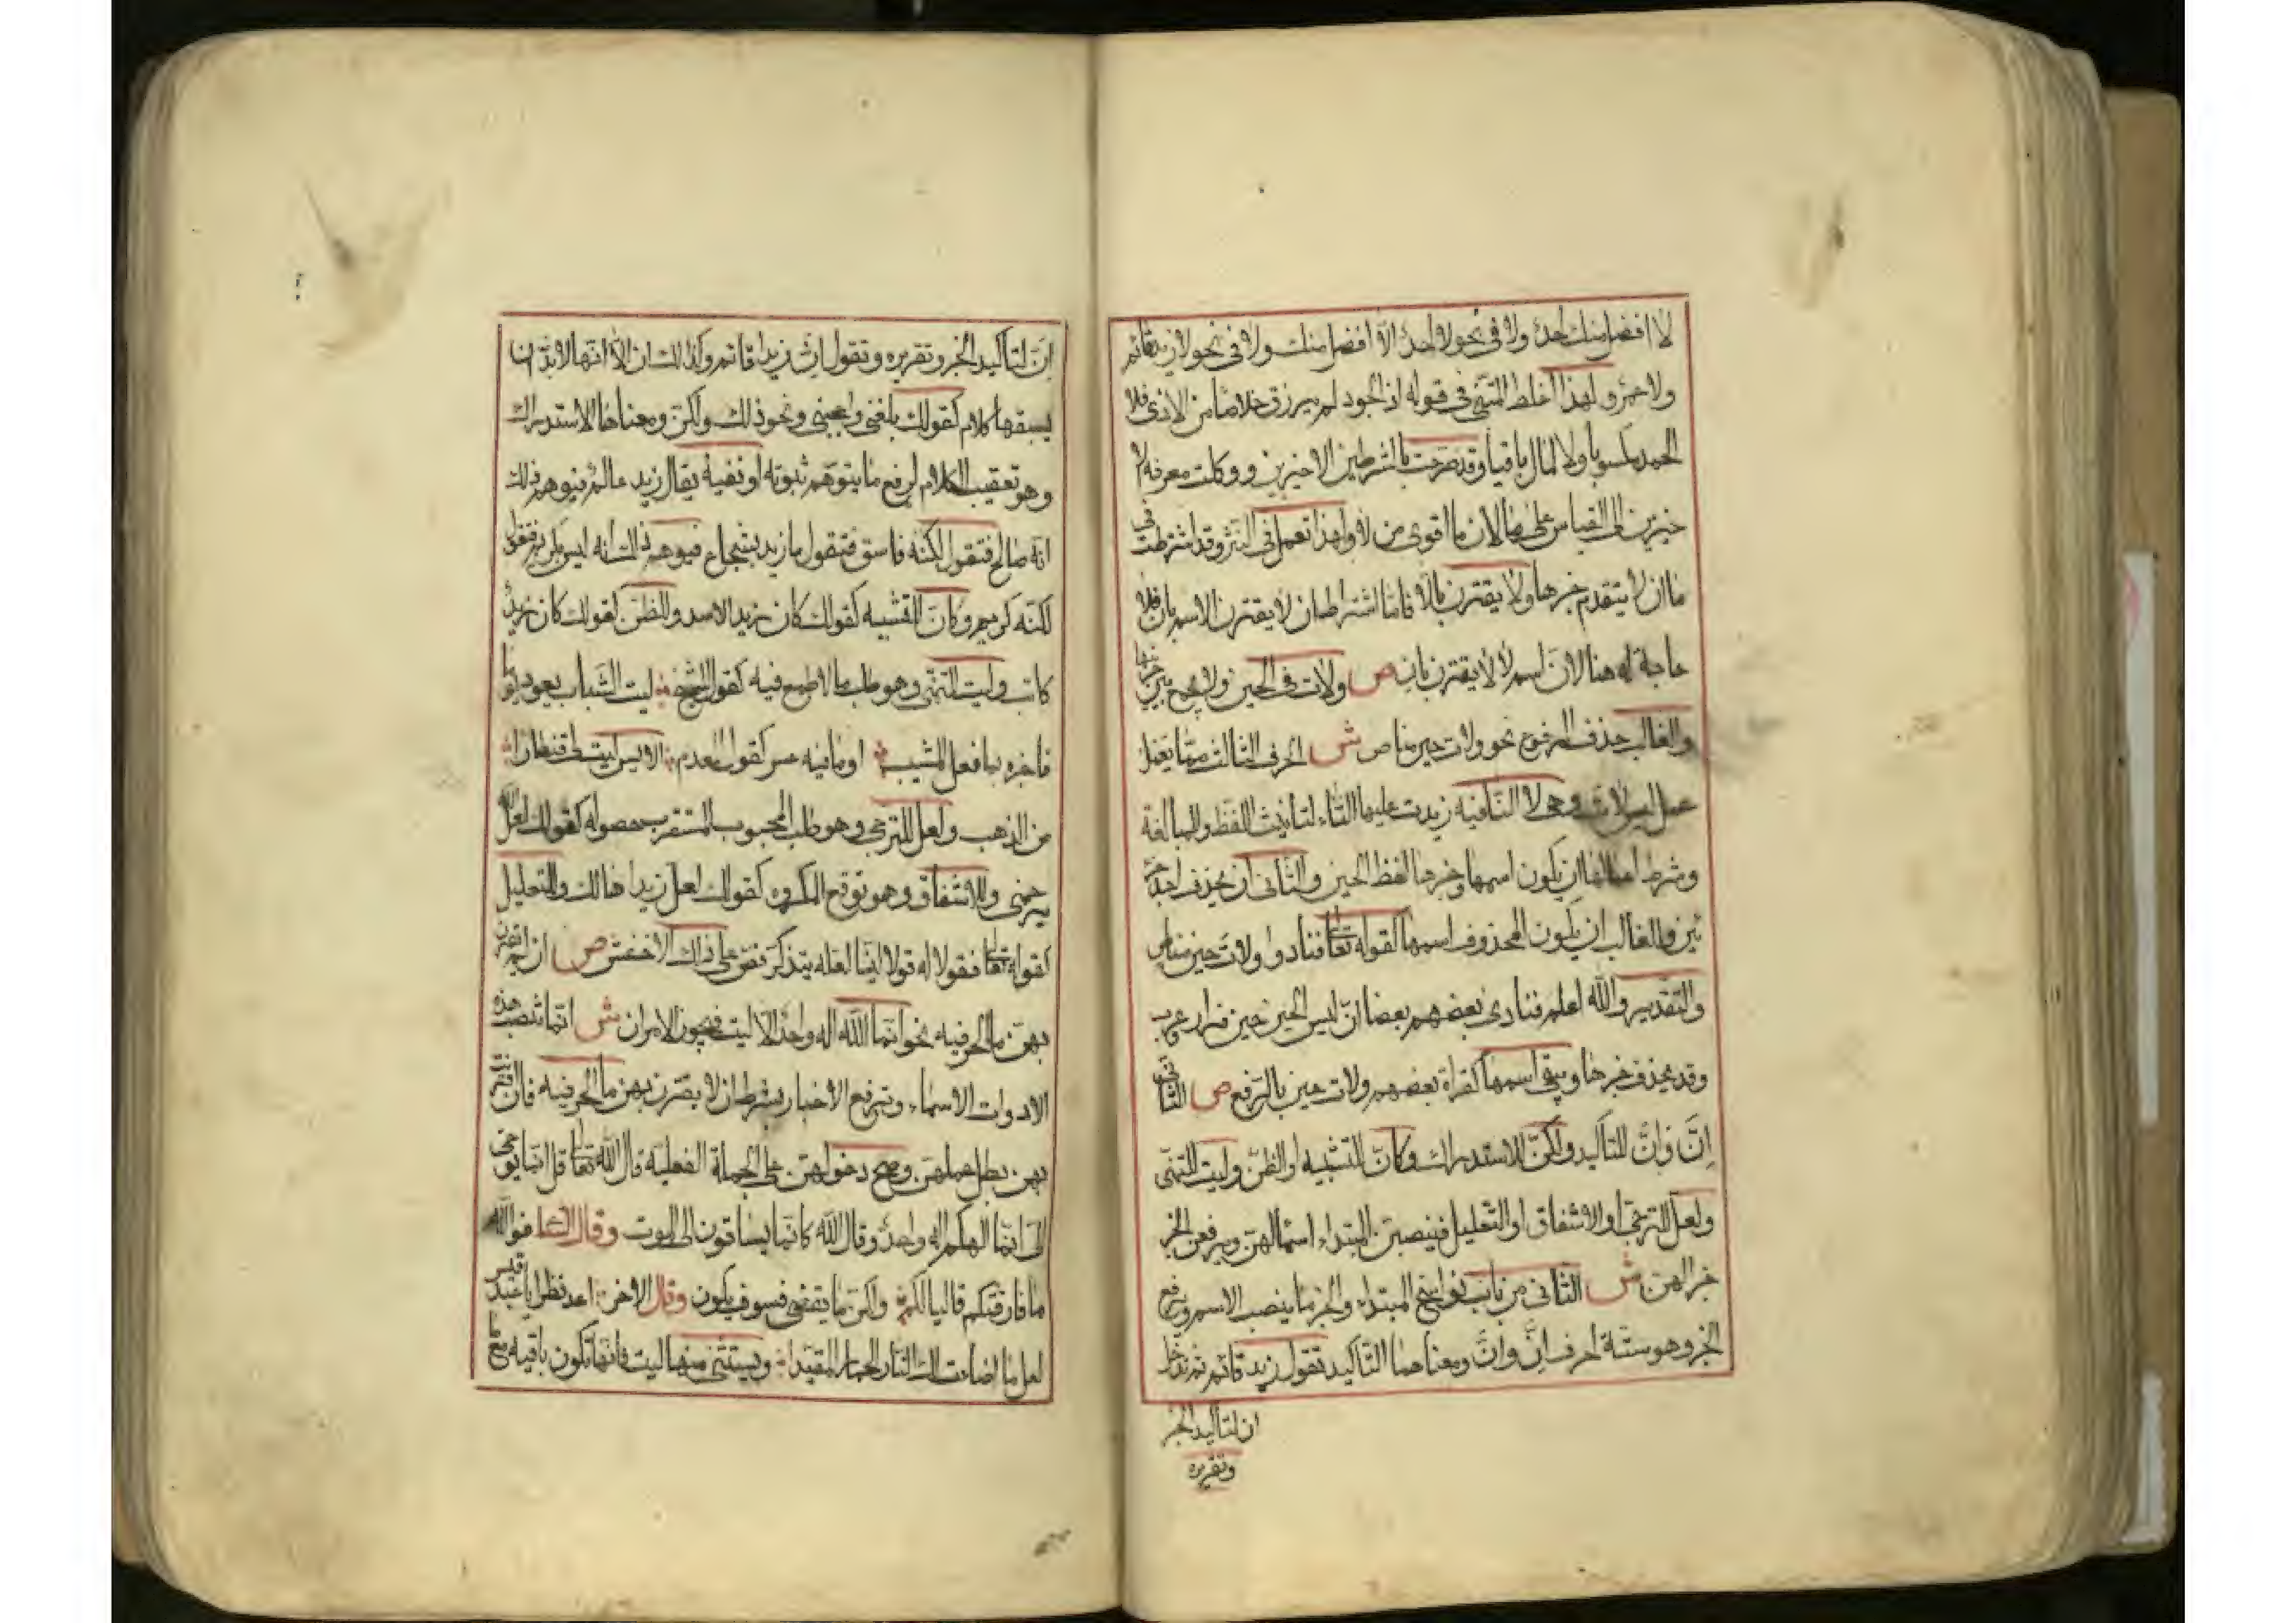 لا افضل منك احد ولا فى نحو لا احد الا افضل منك ولا فى نحو لا زيد قائم
ولا عمرو ولهذا غلط المتنبى فى قوله اذ الجود لم يرزق خلاصا من الاذى فلا
الحمد مكسوبا ولا المال باقيا وقد صرحت بالشرطين الاخيرين ووكلت معرفة الا
خيرين الى القياس على ما لان ما اقوى من لا ولهذا تعمل فى النثر وقد اشترطت فى
ما ان لا يتقدم خبرها ولا يقترن بالا فاما اشتراط ان لا يقترن الاسم بان فلا
حاجة له هنا لان اسم لا لا يقترن بان ص ولات فى الحين ولا يجمع بين جزئيها
والغالب حذف المرفوع نحو ولات حين مناص ش الحرف الثالث مما يعمل
عمل ليس لات وهى لا النافيه زيدت عليها التاء لتانيث اللفظ والمبالغة
وشرط اعمالها ان يكون اسمها وخبرها لفظ الحين والثانى ان يحذف احد الجز
ئين والغالب ان يكون المحذوف اسمها كقوله تعالى فنادوا ولات حين مناص
والتقدير والله اعلم فنادى بعضهم بعضا ان ليس الحين حين فرار
وقد يحذف خبرها ويبقى اسمها كقراة بعضهم ولات حين بالرفع ص الثانى
اِنَّ وَاَنَّ للتاكيد ولكنّ للاستدراك وكانّ للتشبيه او الظنّ وليت للتمنى
ولعل للترجى او الاشفاق او التعليل فينصبن المبتداء اسما لهن ويرفعن الخبر
خبرا لهن ش الثانى من باب نواسخ المبتداء والخبر ما ينصب الاسم ويرفع
الخبر وهو ستة احرف اِنَّ واَنَّ ومعناهما التاكيد تقول زيد قائم ثم تدخل
ان لتاكيد الخبر
وتقريره
اِنَّ لتاكيد الخبر وتقريره وتقول اِنّ زيدا قائم وكذالك ان الا انها لا بد ان
يسبقها كلام كقولك بلغنى واعجبنى ونحو ذلك ولكنّ ومعناها الاستدراك
وهو تعقيب الكلام لرفع ما يتوهم ثبوته او نفيه يقال زيد عالم فيوهم ذلك
انه صالح فتقول لكنه فاسق فتقول ما زيد بشجاع فيوهم ذالك انه ليس بكريم فتقول
لكنه كريم وكانّ للتشبيه كقولك كان زيد الاسد وللظن كقولك كان زيد
كاتب وليت للتمنى وهو طلب ما لا طمع فيه كقول الشيخ ليت الشباب يعود يوما
فاخبره بما فعل المشيب او ما فيه عسر كقول المعدم الايس ليت لى قنطارا
من الذهب ولعل للترجى وهو طلب المحبوب المستقرب حصوله كقولك لعل الله
يرحمنى وللاشفاق وهو توقع المكروه كقولك لعل زيدا هالك وللتعليل
كقوله تعالى فقولا له قولا لينا لعله يتذكر نص على ذلك الاخفش ص ان لم تقترن
بهن ما الحرفيه نحو انما الله اله واحد الا ليت فيجوز الامران ش انما تنصب هذه
الادوات الاسماء وترفع الاخبار بشرط ان لا يقترن بهن ما الحرفيه فان اقترنت
بهن بطل عملهن وصح دخولهن على الجملة الفعليه قال الله تعالى قل انما يوحى
الى انما الهكم اله واحد وقال الله كانما يساقون الى الموت وقال الشاعر فوالله
ما فارقتكم قاليا لكم ولكن ما يقضى فسوف يكون وقال الاخر اعد نظرا يا عبد قيس
لعل ما اضاءت لك النار الحمار المقيدا ويستثنى منها ليت فانها تكون باقيه مع ما